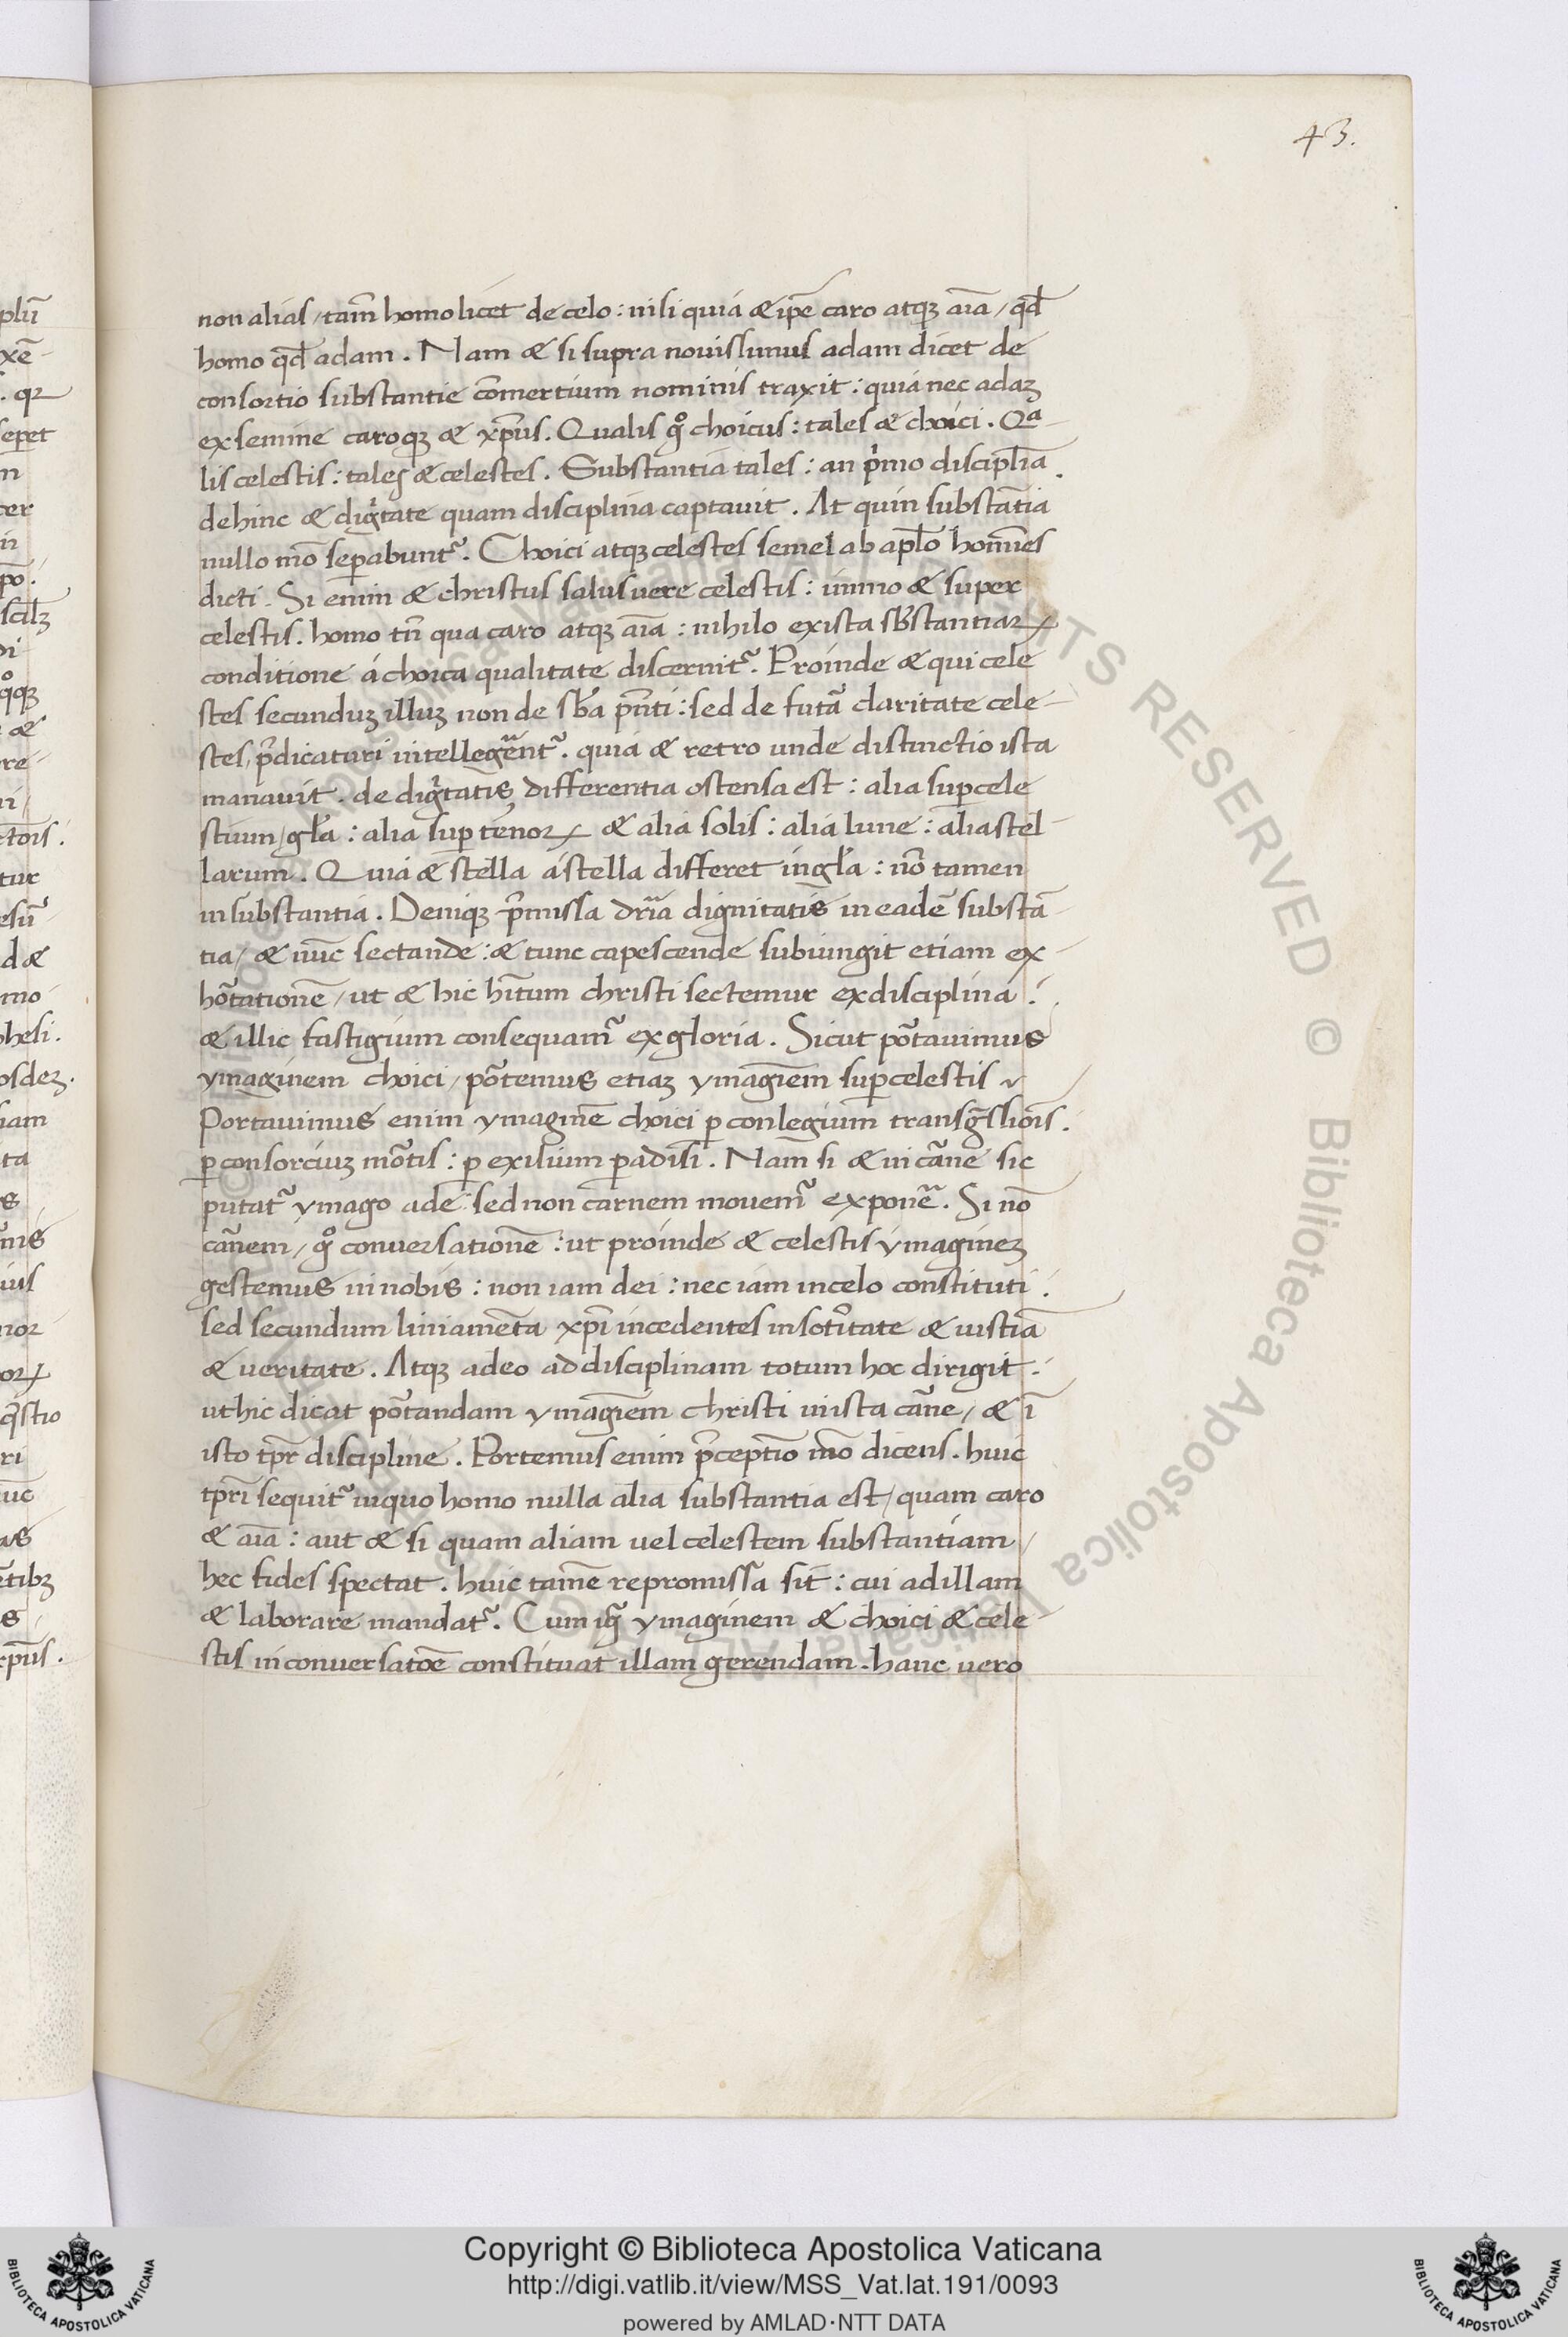 43.
non alias / tam̄ homo licet de celo : nisi quia & ip̄e caro atqꝫ aīa / qđ
homo qđ adam . Nam & si supra novissimus adam dicet de
consortio substantie com̄ertium nominis traxit : quia nec adaꝫ
ex semine caroqꝫ & xp̄us. Qualis gͦ choicus : tales & choici . Qᵃ-
lis celestis : tales & celestes . Substantia tales : an pⁱmo discipl̄ia .
dehinc & digⁱtate quam disciplina captavit . At quin substātia
nullo mō sep̄abunt᷑ . Choici atqꝫ celestes semel ab apl̄o homīes
dicti . Si enim & christus solus vere celestis : immo & super
celestis . homo tn̄ qua caro atqꝫ aīa : nihilo ex ista sb̄stantiaꝝ
conditione á choica qualitate discernit᷑ . Proinde & qui cele
stes secunduꝫ illuꝫ non de sb̄a pn̄ti : sed de futᵃ claritate cele-
stes p̄dicatari intellegēnt᷑ . quia & retro unde distinctio ista
manavit . de digⁱtatis differentia ostensa est : alia sup̄cele
stium / gl̄a : alia sup terrenoꝝ & alia solis : alia lune : alia stel-
larum . Quia & stella á stella differet in gl̄a : nō tamen
in substantia . Denique p̄missa dr̄ia dignitatis in eadē substā-
tia / & nūc sectande : & tunc capescende subiungit etiam ex-
hōtationē / ut & hic hītum christi sectemur ex disciplina :
& illic fastigium consequam᷑ ex gloria . Sicut pōtavimus
ymaginem choici / pōtemus etiaꝫ ymagīem sup̄celestis
Portavimus enim ymaginē choici ꝑ conlegium transḡssiōis .
ꝑ consorciuꝫ mōtis : ꝑ exilium ꝑadisi . Nam si & in cāne sic
putat᷑ ymago ade : sed non carnem movem᷑ exponē . Si nō
cānem / gͦ conversationē : ut proinde & celestis ymagineꝫ
gestemus in nobis : non iam dei : nec iam in celo constituti :
sed secundum liniamēta xp̄i incedentes in sct̄itate & iustiā
& veritate . Atqꝫ adeo ad disciplinam totum hoc dirigit :
ut hic dicat pōtandam ymagīem christi in ista cāne / & ī
isto tp̄r discipline . Portemus enim p̄ceptīo mō dicens . huic
tp̄ri sequit᷑ in quo homo nulla alia substantia est / quam caro
& aīa : aut & si quam aliam vel celestem substantiam /
hec fides spectat . huic tamē repromissa sit : cui ad illam
& laborare mandat᷑ . Cum igᷓ ymaginem & choici & cele-
stis in conversatōe constituat illam gerendam . hanc vero
RIGHTS RESERVED © Biblioteca Apostolica Vaticana
Copyright © Biblioteca Apostolica Vaticana
http://digi.vatlib.it/view/MSS_Vat.lat.191/0093
powered by AMLAD·NTT DATA
BIBLIOTECA APOSTOLICA VATICANA
BIBLIOTECA APOSTOLICA VATICANA